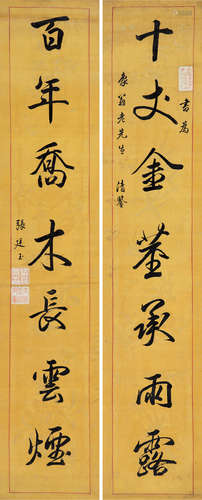 十丈金莖承雨露
書為
康翁老先生 清鑒
百年喬木長雲煙
張廷玉